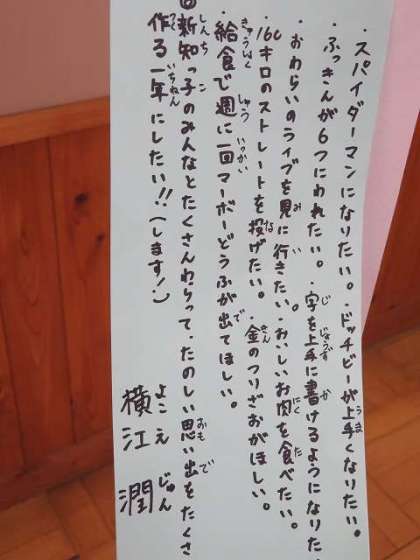 ・スパイダーマンになりたい。・ドッチビーが上手くなりたい。
・ふっきんが6つにわれたい。・字を上手に書けるようになりた
・おわらいのライブを見に行きたい。・おいしいお肉を食べたい。
・160キロのストレートを投げたい。・金のつりざおがほしい。
・給食で週に一回マーボーどうふが出てほしい。
回新知っ子のみんなとたくさんわらって、たのしい思い出をたくさ
作る一年にしたい!!(します!)
横江 潤